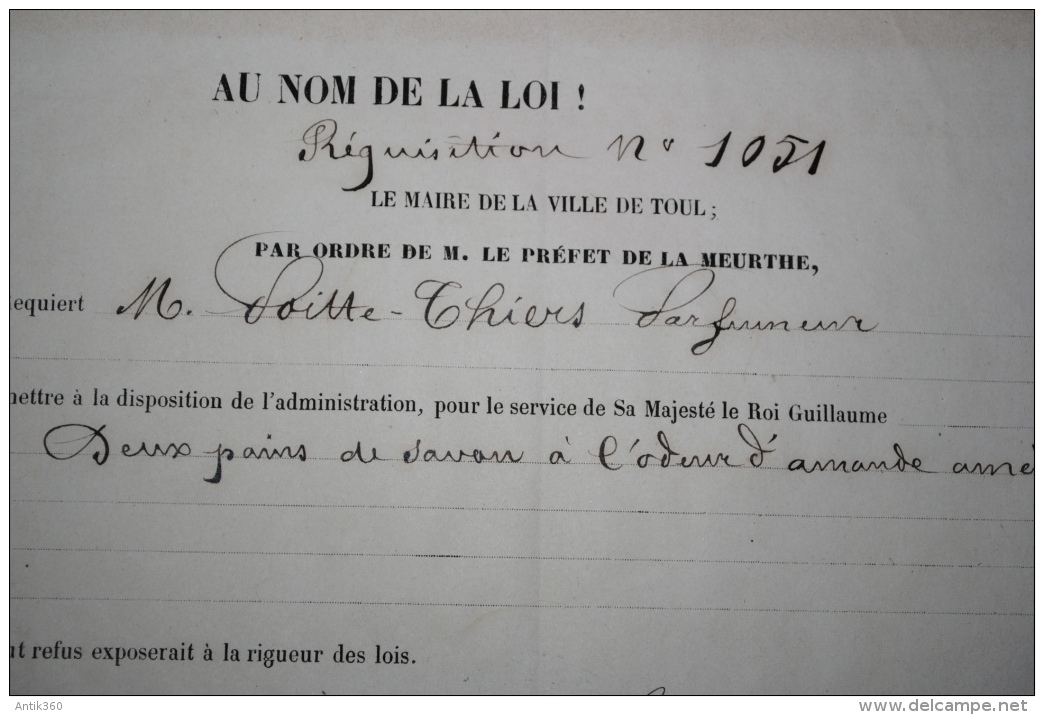 AU NOM DE LA LOI !
Réquisition No 1051
LE MAIRE DE LA VILLE DE TOUL ;
PAR ORDRE DE M. LE PRÉFET DE LA MEURTHE,
equiert M. Poitte-Thiers Parfumeur
mettre à la disposition de l'administration, pour le service de Sa Majesté le Roi Guillaume
Deux pains de savon à l'odeur d'amande amè
ut refus exposerait à la rigueur des lois.
Antik360
www.delcampe.net